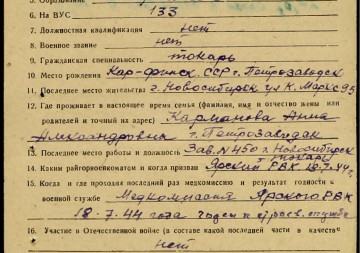 5. Образование
6. На ВУС 133
7. Должностная квалификация нет
8. Военное звание нет
9. Гражданская специальность токарь
10. Место рождения Кар-финск. ССР г. Петрозаводск
11. Последнее место жительства г. Новосибирск ул К. Маркс 95
12. Где проживает в настоящее время семья (фамилия, имя и отчество жены или
родителей и точный их адрес) Карманова Анна
Александровна г. Петрозаводск
13. Последнее место работы и должность Зав. N 450 г. Новосибирск
токарь
14. Каким райгорвоенкоматом и когда призван Ярский РВК 44г.
15. Когда и где проходил последний раз медкомиссию и результат годности к
военной службе Медкомиссия Ярского РВК
18. 7. 44 года годен к строев. службе
16. Участие в Отечественной войне (в составе какой последней части в качестве
нет